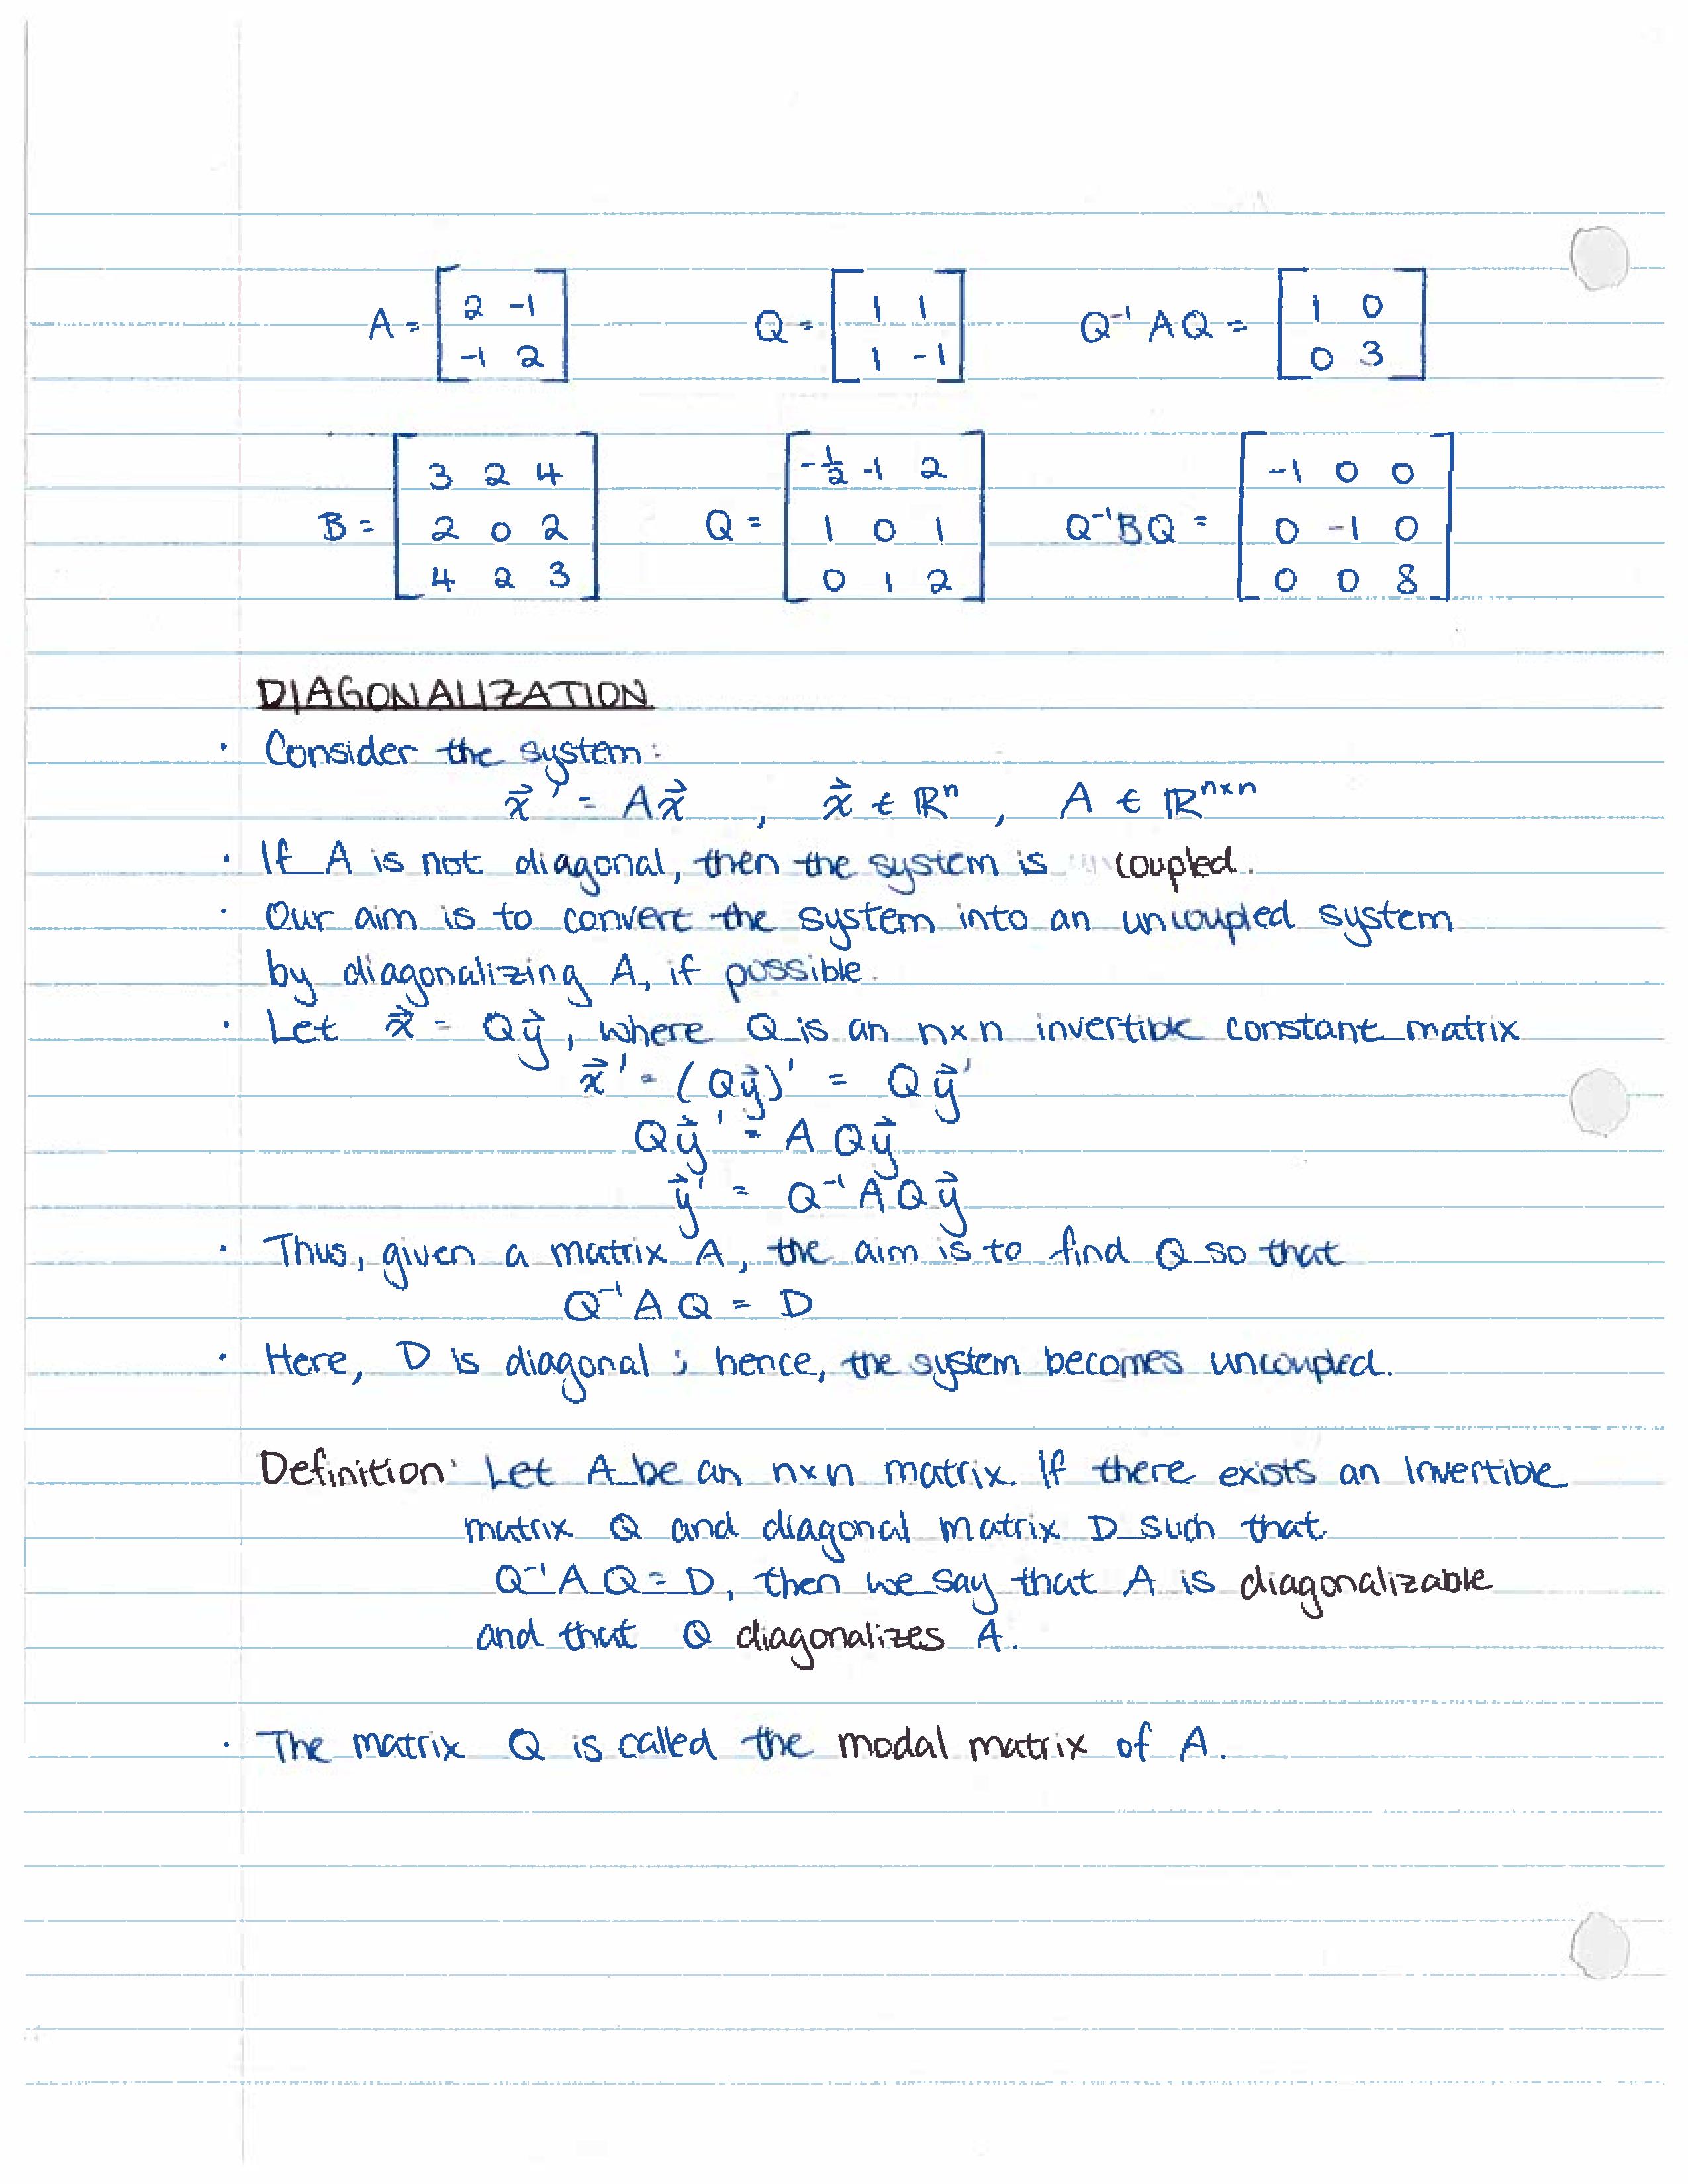 A = [ 2 -1 ; -1 2 ] Q = [ 1 1 ; 1 -1 ] Q⁻¹AQ = [ 1 0 ; 0 3 ]
B = [ 3 2 4 ; 2 0 2 ; 4 2 3 ] Q = [ -½ -1 2 ; 1 0 1 ; 0 1 2 ] Q⁻¹BQ = [ -1 0 0 ; 0 -1 0 ; 0 0 8 ]
DIAGONALIZATION
· Consider the system:
x⃗' = Ax⃗ , x⃗ ∈ ℝⁿ , A ∈ ℝⁿˣⁿ
· If A is not diagonal, then the system is coupled.
· Our aim is to convert the system into an uncoupled system
by diagonalizing A, if possible.
· Let x⃗ = Qy⃗, where Q is an n×n invertible constant matrix
x⃗' = (Qy⃗)' = Qy⃗'
Qy⃗' = AQy⃗
y⃗' = Q⁻¹AQy⃗
· Thus, given a matrix A, the aim is to find Q so that
Q⁻¹AQ = D
· Here, D is diagonal; hence, the system becomes uncoupled.
Definition: Let A be an n×n matrix. If there exists an invertible
matrix Q and diagonal matrix D such that
Q⁻¹AQ = D, then we say that A is diagonalizable
and that Q diagonalizes A.
· The matrix Q is called the modal matrix of A.